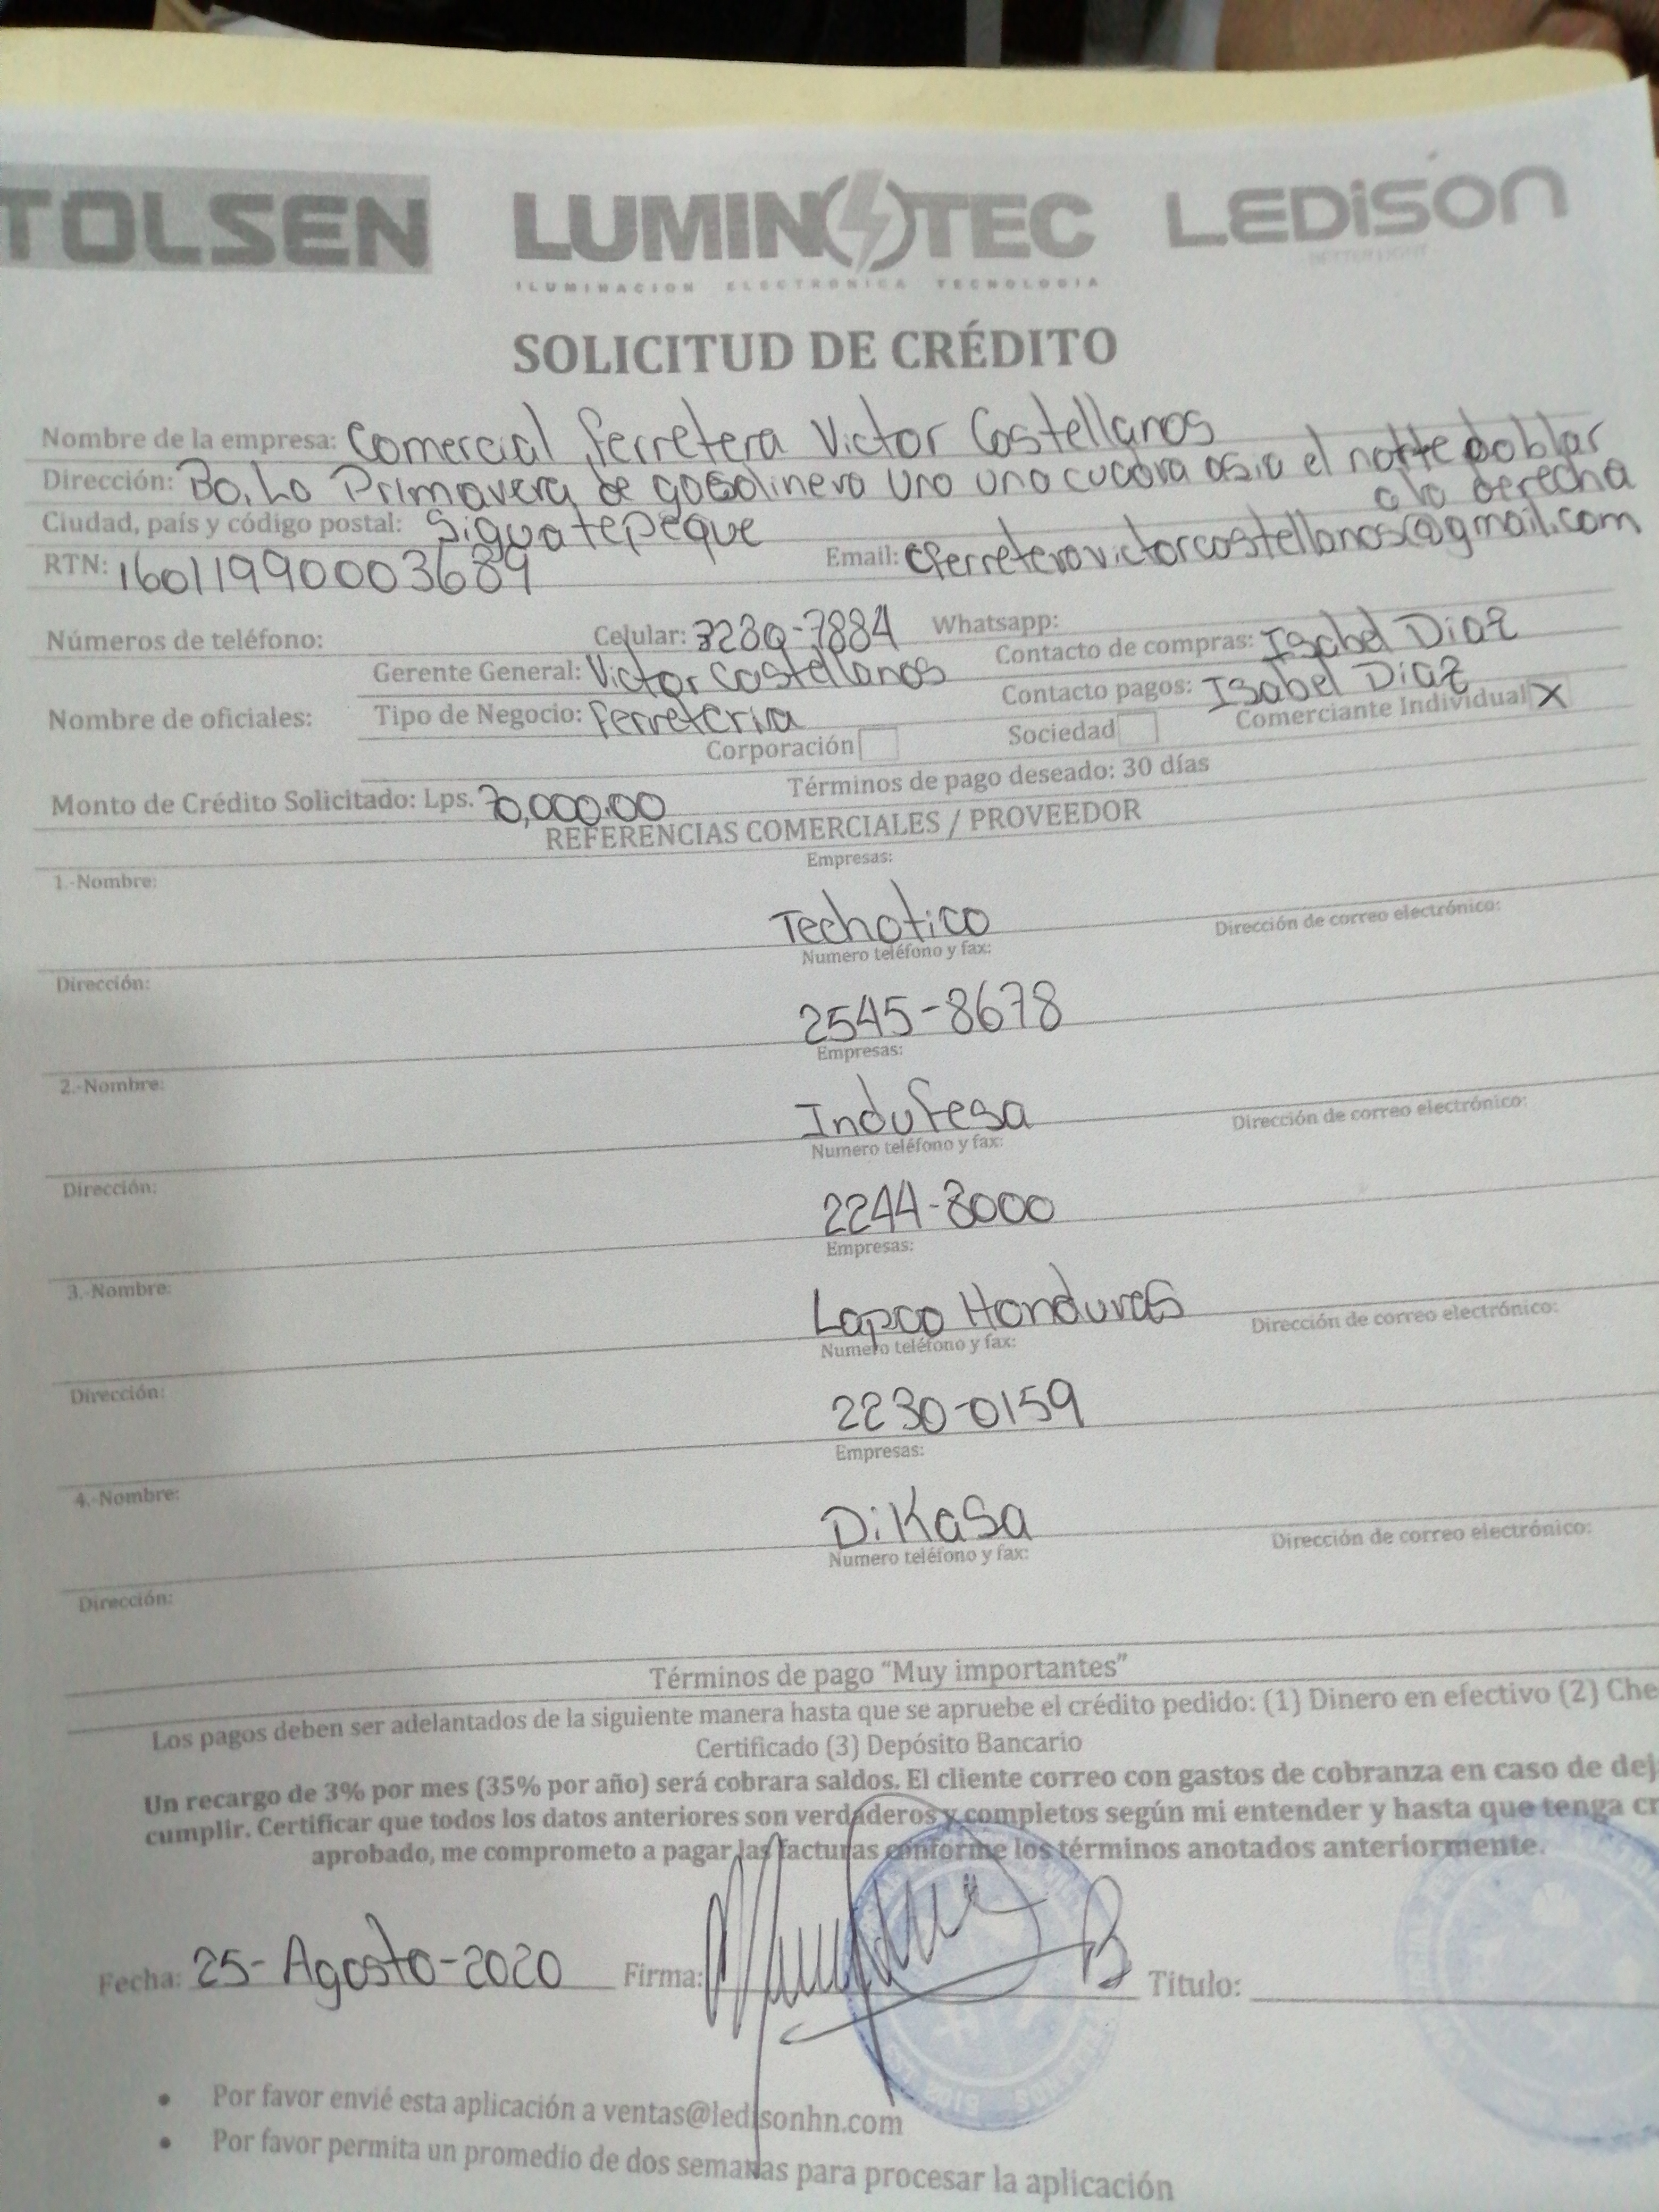 TOLSEN LUMINOTEC LEDiSON
ILUMINACION ELECTRONICA TECNOLOGIA BETTER LIGHT
SOLICITUD DE CRÉDITO
Nombre de la empresa: Comercial Ferretera Victor Castellanos
Dirección: Bo. La Primavera de gasolinera Uno una cuadra asia el norte doblar
a la derecha
Ciudad, país y código postal: Siguatepeque
RTN: 16011990003689 Email: cferreteravictorcastellanos@gmail.com
Números de teléfono: Celular: 3280-7884 Whatsapp:
Gerente General: Victor Castellanos Contacto de compras: Isabel Diaz
Nombre de oficiales: Tipo de Negocio: Ferreteria Contacto pagos: Isabel Diaz
Corporación Sociedad Comerciante Individual X
Monto de Crédito Solicitado: Lps. 70,000.00 Términos de pago deseado: 30 días
REFERENCIAS COMERCIALES / PROVEEDOR
1.-Nombre: Empresas:
Techotico
Dirección: Numero teléfono y fax: Dirección de correo electrónico:
2545-8678
2.-Nombre: Empresas:
Indufesa
Dirección: Numero teléfono y fax: Dirección de correo electrónico:
2244-8000
3.-Nombre: Empresas:
Lapco Honduras
Dirección: Numero teléfono y fax: Dirección de correo electrónico:
2230-0159
4.-Nombre: Empresas:
DiKasa
Dirección: Numero teléfono y fax: Dirección de correo electrónico:
Términos de pago “Muy importantes”
Los pagos deben ser adelantados de la siguiente manera hasta que se apruebe el crédito pedido: (1) Dinero en efectivo (2) Che
Certificado (3) Depósito Bancario
Un recargo de 3% por mes (35% por año) será cobrara saldos. El cliente correo con gastos de cobranza en caso de dej
cumplir. Certificar que todos los datos anteriores son verdaderos y completos según mi entender y hasta que tenga cr
aprobado, me comprometo a pagar las facturas conforme los términos anotados anteriormente.
Fecha: 25-Agosto-2020 Firma: Titulo:
• Por favor envié esta aplicación a ventas@ledisonhn.com
• Por favor permita un promedio de dos semanas para procesar la aplicación